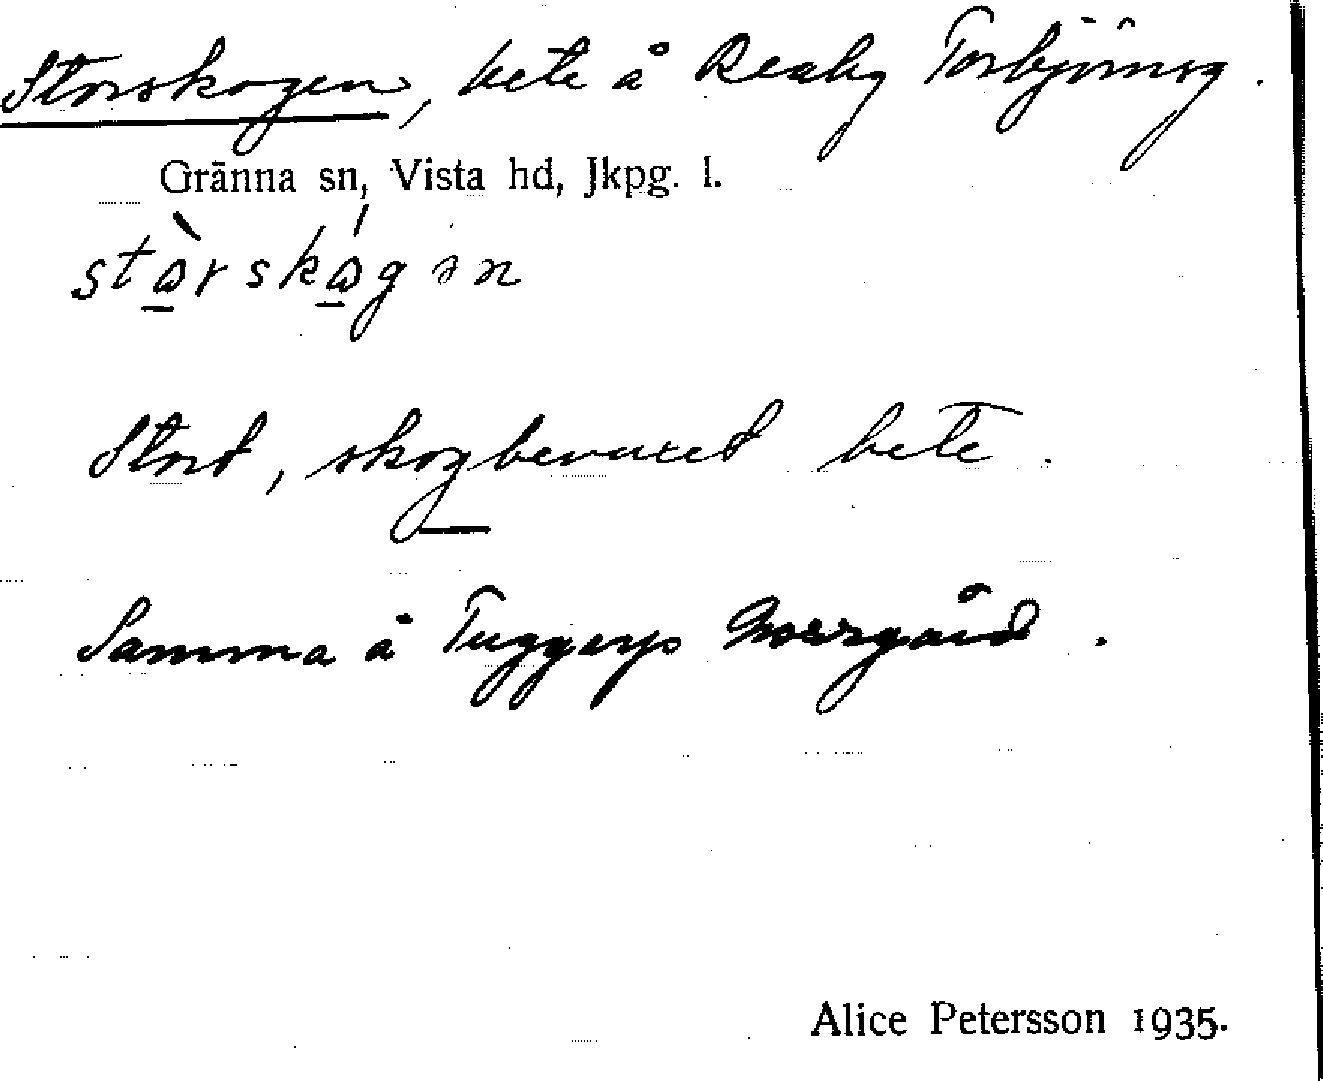 Storskogen, bete å Reaby Torbjörnsg.
Gränna sn, Vista hd, Jkpg. l.
stòrskógən
Stort, skogbevuxet bete.
Samma å Tuggarps Norrgård.
Alice Petersson 1935.